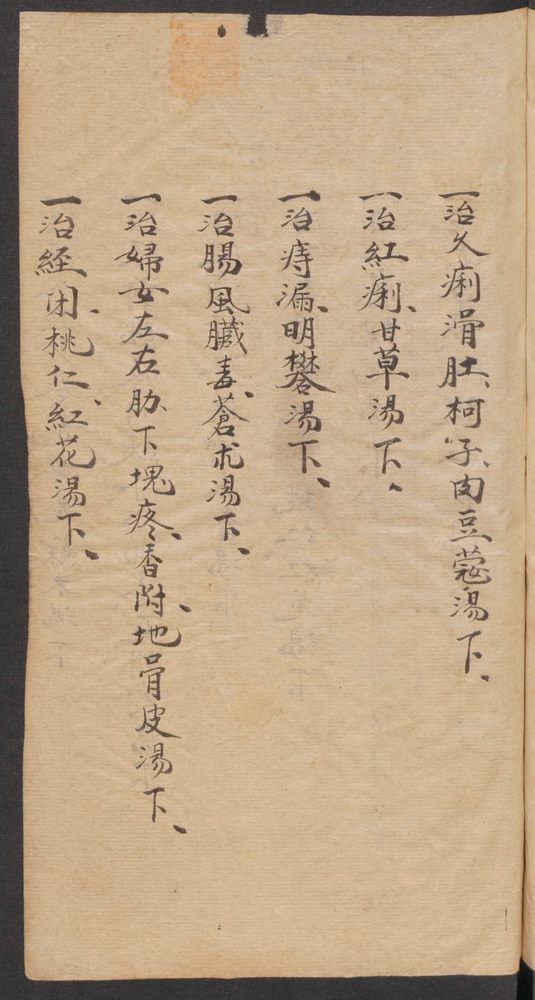 一治久痢滑肚、柯子、肉豆蔻湯下、
一治紅痢、甘草湯下、
一治痔漏、明礬湯下、
一治腸風臟毒、蒼朮湯下、
一治婦女左右肋下塊疼、香附、地骨皮湯下、
一治經闭、桃仁、紅花湯下、